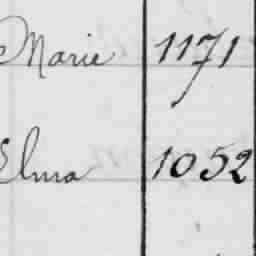 Marie 1171
Elma 1052